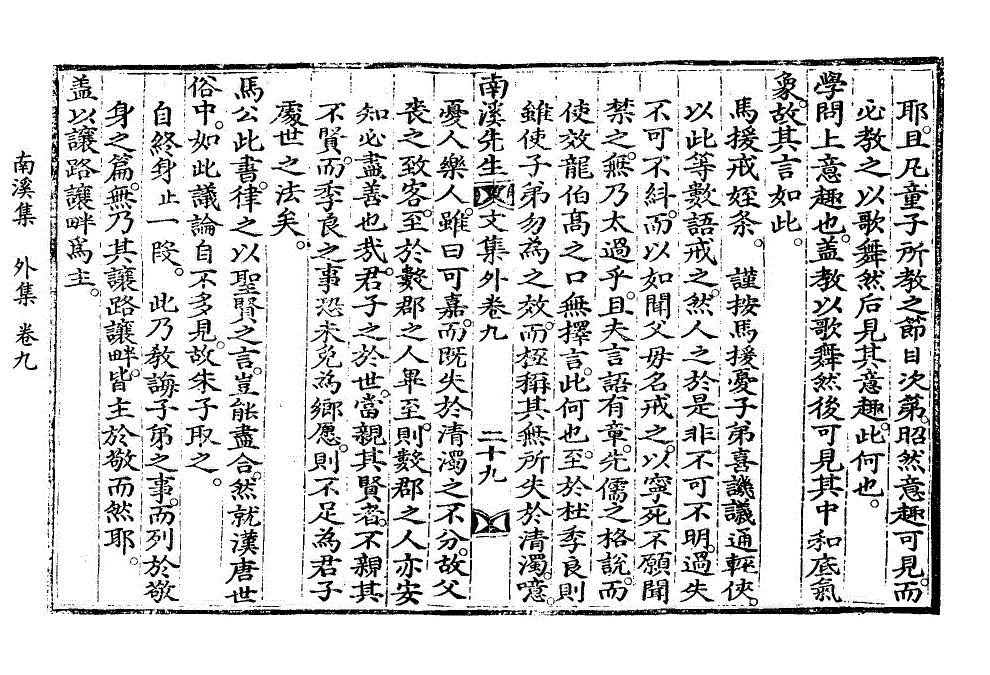 耶。且凡童子所教之節目次第。昭然意趣可見。而
必教之以歌舞然后見其意趣。此何也。
學問上意趣也。盖教以歌舞然後可見其中和底氣
象。故其言如此。
馬援戒姪条。　謹按馬援憂子弟喜譏議通輕俠。
以此等數語戒之。然人之於是非不可不明。過失
不可不糾。而以如聞父母名戒之。以寧死不願聞
禁之。無乃太過乎。且夫言語有章。先儒之格說。而
使效龍伯髙之口無擇言。此何也。至於杜季良則
雖使子弟勿為之效。而極稱其無所失於清濁。噫。
南溪先生文集外卷九　二十九
憂人樂人。雖曰可嘉。而既失於清濁之不分。故父
丧之致客。至於數郡之人畢至。則數郡之人亦安
知必盡善也哉。君子之於世。當親其賢者。不親其
不賢。而季良之事恐未免為鄉愿。則不足為君子
處世之法矣。
馬公此書。律之以聖賢之言。豈能盡合。然就漢唐世
俗中。如此議論自不多見。故朱子取之。
自終身止一段。　此乃教誨子弟之事。而列於敬
身之篇。無乃其讓路讓畔。皆主於敬而然耶。
盖以讓路讓畔爲主。
南溪集　外集　卷九